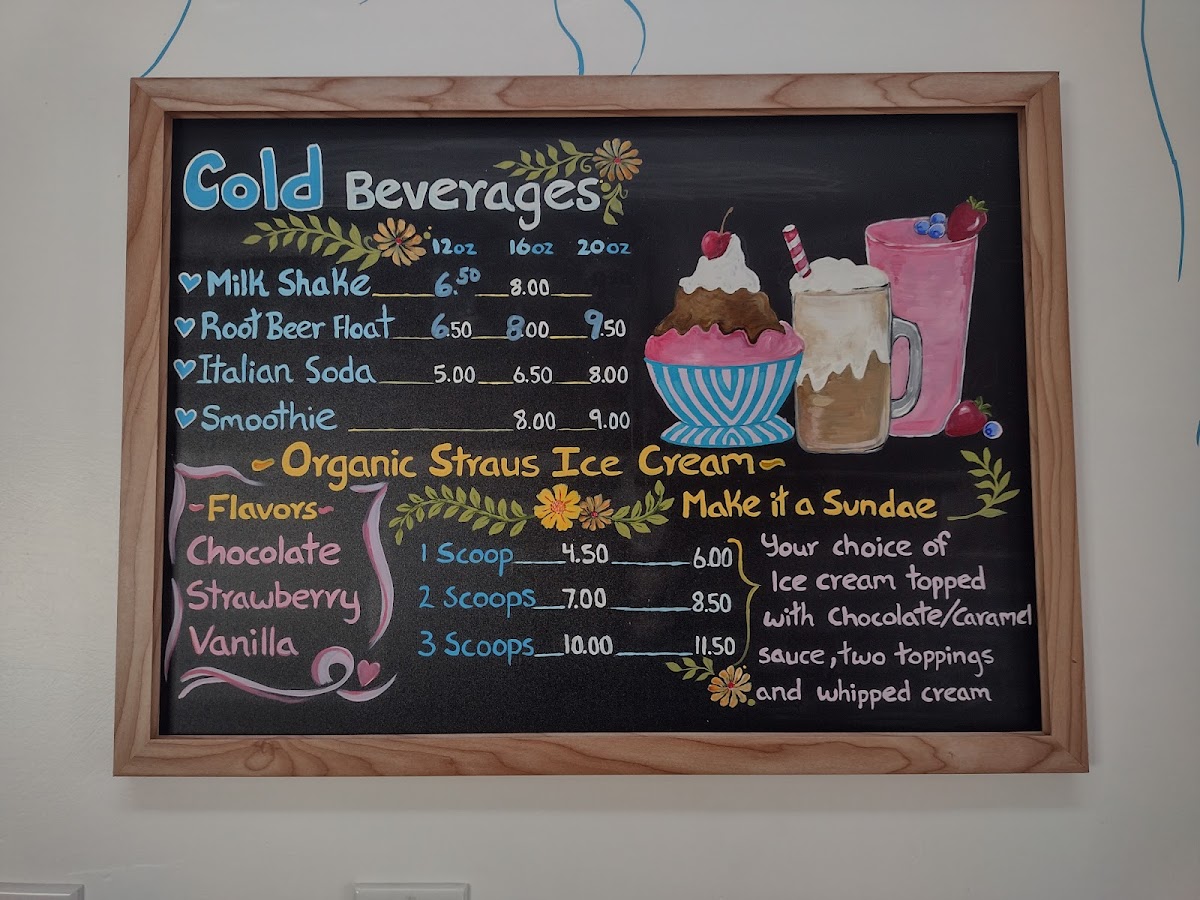 Cold Beverages
12oz 16oz 20oz
Milk Shake 6.50 8.00
Root Beer Float 6.50 8.00 9.50
Italian Soda 5.00 6.50 8.00
Smoothie 8.00 9.00
~Organic Straus Ice Cream~
~Flavors~
Chocolate
Strawberry
Vanilla
1 Scoop 4.50 6.00
2 Scoops 7.00 8.50
3 Scoops 10.00 11.50
Make it a Sundae
Your choice of
Ice cream topped
with Chocolate/Caramel
sauce, two toppings
and whipped cream